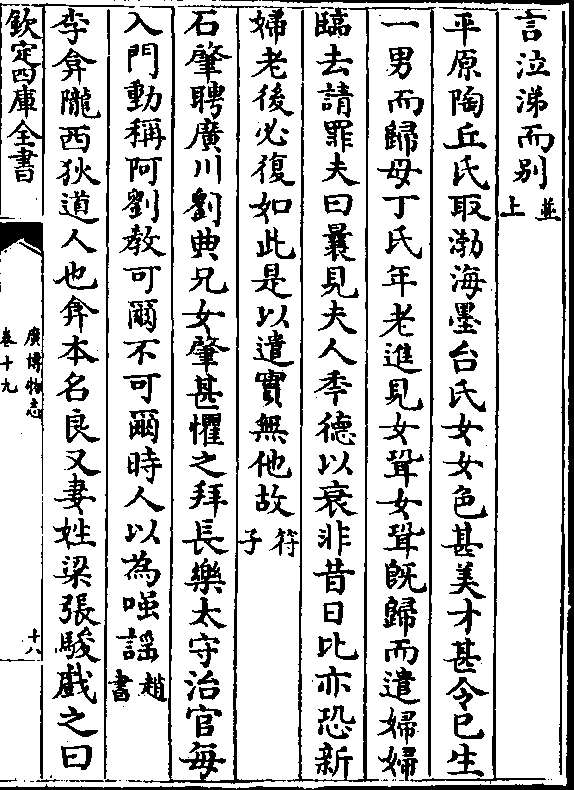 言泣涕而别並上
平原陶丘氏取渤海墨台氏女女色甚美才甚令已生
一男而歸母丁氏年老進見女聟女聟既歸而遣婦婦
臨去請罪夫曰曩見夫人季德以衰非昔日比亦恐新
婦老後必復如此是以遣實無他故符子
石肇聘廣川劉典兄女肇甚懼之拜長樂太守治官每
入門動稱阿劉教可爾不可爾時人以為嗤謡趙書
李弇隴西狄道人也弇本名良又妻姓梁張駿戲之曰
欽定四庫全書
廣博物志
卷十九
十八